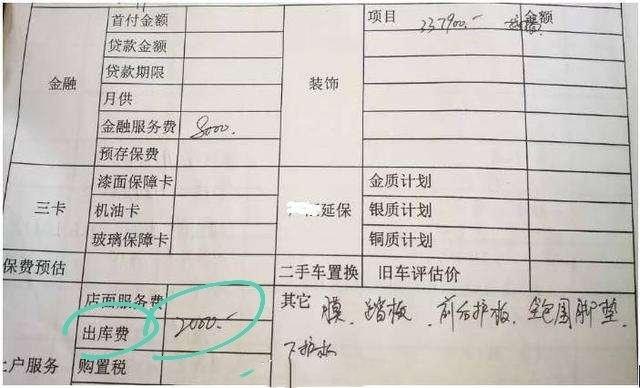 首付金额 项目 金额
贷款金额 337900.-
贷款期限
金融 月供 装饰
金融服务费 8000.
预存保费
漆面保障卡 金质计划
三卡 机油卡 延保 银质计划
玻璃保障卡 铜质计划
保费预估 二手车置换 旧车评估价
店面服务费 其它 膜、踏板、前后护板、全包围脚垫
出库费 2000.- 下护板
上户服务 购置税